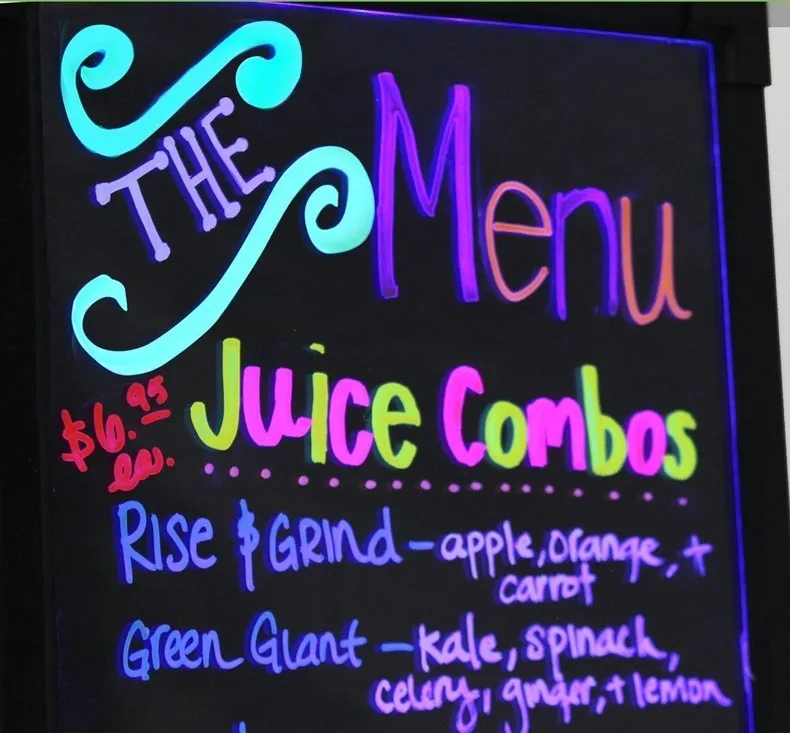 THE Menu
$6.95 ea.
Juice Combos
RISE & GRInd - apple, orange, +
carrot
Green Giant - kale, spinach,
celery, ginger, + lemon